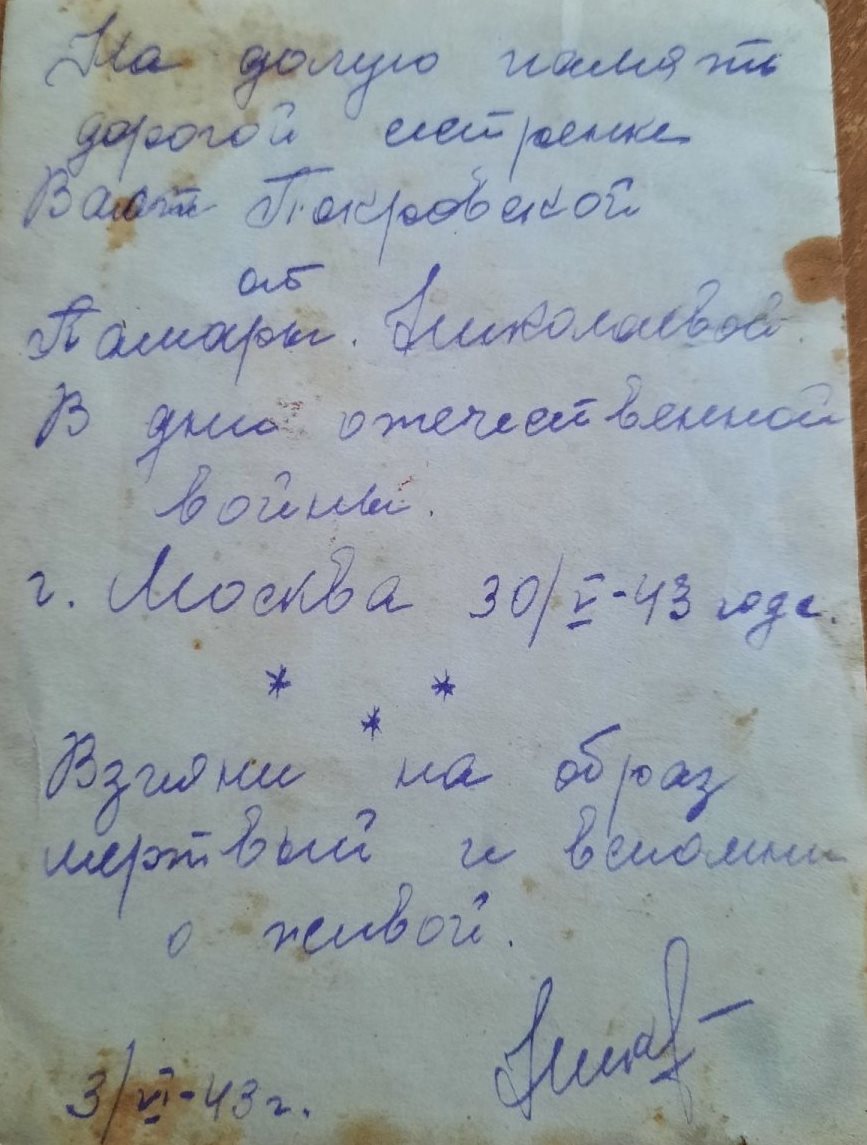 На долгую память
дорогой сестренке
Покровской
от
Тамары. Николаевой.
В дни отечественной
войны.
г. Москва 30/V-43 года.
* * *
Взгляни на образ
мертвый и вспомни
о живой.
3/VI-43 г.